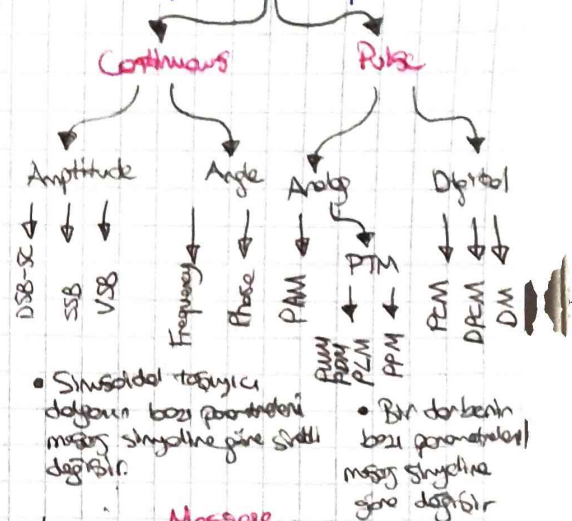 Continuous Pulse
Amplitude Angle Analog Digital
DSB-SC SSB VSB Frequency Phase PAM PTM PCM DPCM DM
PWM
PDM
PLM PPM
• Sinusoidal taşıyıcı
dalganın bazı parametreleri
mesaj sinyaline göre sürekli
değişir.
• Bir darbenin
bazı parametreleri
mesaj sinyaline
göre değişir
Message